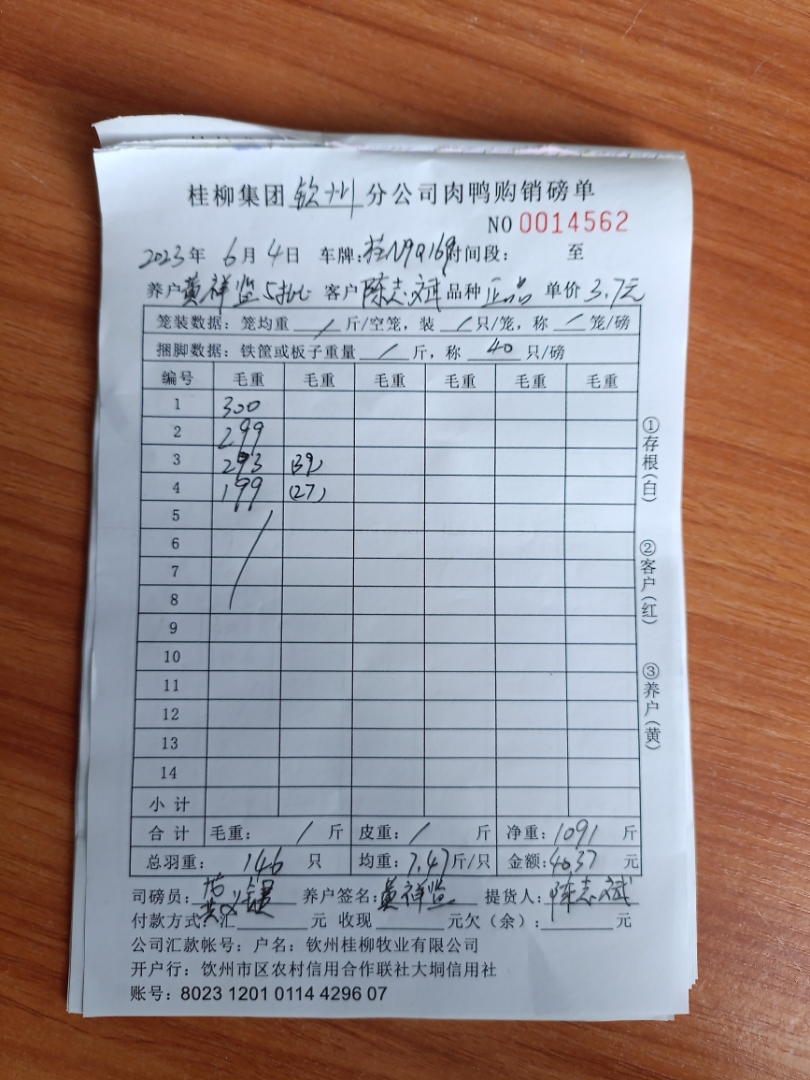 桂柳集团钦州分公司肉鸭购销磅单
NO 0014562
2023年 6月 4日 车牌:桂N9916 时间段: 至
养户黄祥监5批 客户陈志斌 品种正品 单价3.7元
笼装数据: 笼均重 / 斤/空笼, 装 / 只/笼, 称 / 笼/磅
捆脚数据: 铁筐或板子重量 / 斤, 称 40 只/磅
编号 毛重 毛重 毛重 毛重 毛重 毛重
1 300
2 299
3 293 (39)
4 199 (27)
5
6
7
8
9
10
11
12
13
14
小计
合计 毛重: / 斤 皮重: / 斤 净重: 1091 斤
总羽重: 146 只 均重: 7.47斤/只 金额: 4037 元
司磅员: 养户签名: 黄祥监 提货人: 陈志斌
付款方式: 汇 元 收现 元欠(余): 元
公司汇款帐号: 户名: 钦州桂柳牧业有限公司
开户行: 钦州市区农村信用合作联社大垌信用社
账号: 8023 1201 0114 4296 07
①存根(白)
②客户(红)
③养户(黄)